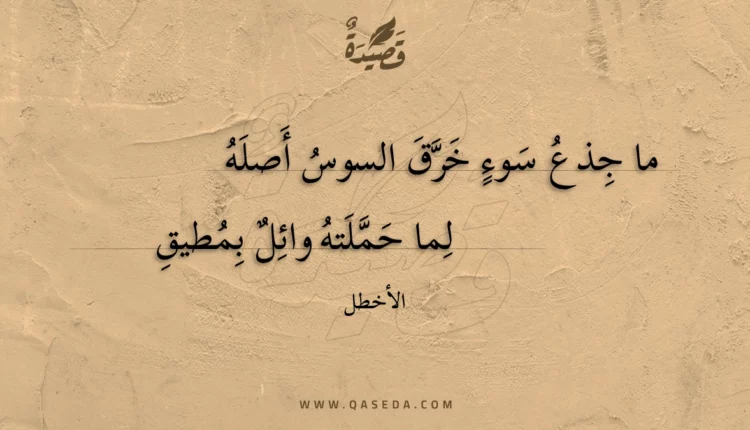 قَصيدَةٌ
ما جِذعُ سَوءٍ خَرَّقَ السوسُ أَصلَهُ
لِما حَمَّلَتهُ وائِلٌ بِمُطيقِ
الأخطل
WWW.QASEDA.COM